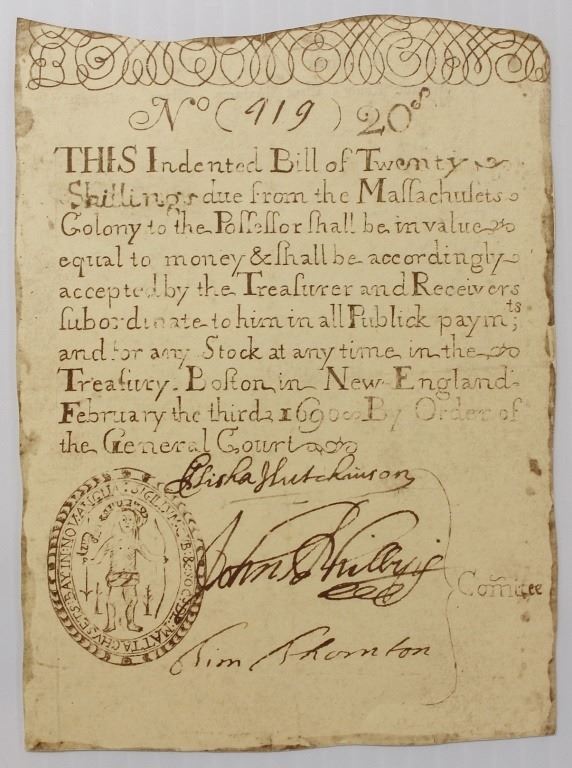 No (919) 20s
THIS Indented Bill of Twenty
Shillings due from the Massachusets
Colony to the Possessor shall be in value
equal to money & shall be accordingly
accepted by the Treasurer and Receivers
subordinate to him in all Publick paymts;
and for any Stock at any time in the
Treasury. Boston in New-England
February the third 1690 By Order of
the General Court
Elisha Hutchinson
John Phillips
Comittee
Tim Thornton
SIGILLUM GUB & SOC DE MATTACHUSETS BAY IN NOVA ANGLIA